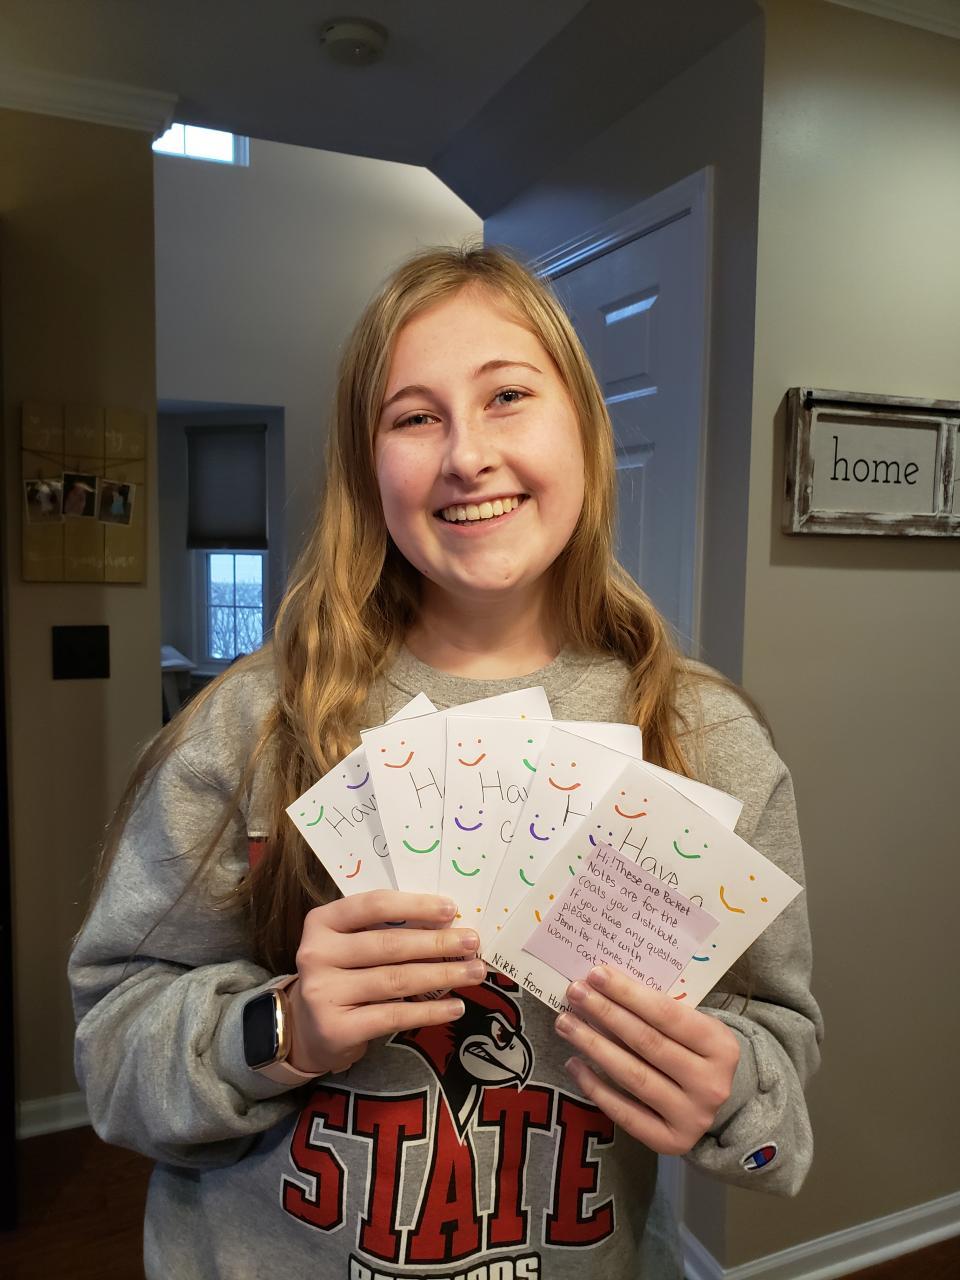 home
Have
G
H
Ha
G
H
Have
a
Hi! These are Pocket
Notes are for the
coats you distribute.
If you have any questions
please check with
Jennifer Hanes from One
Warm Coat
Nikki from Hun
STATE